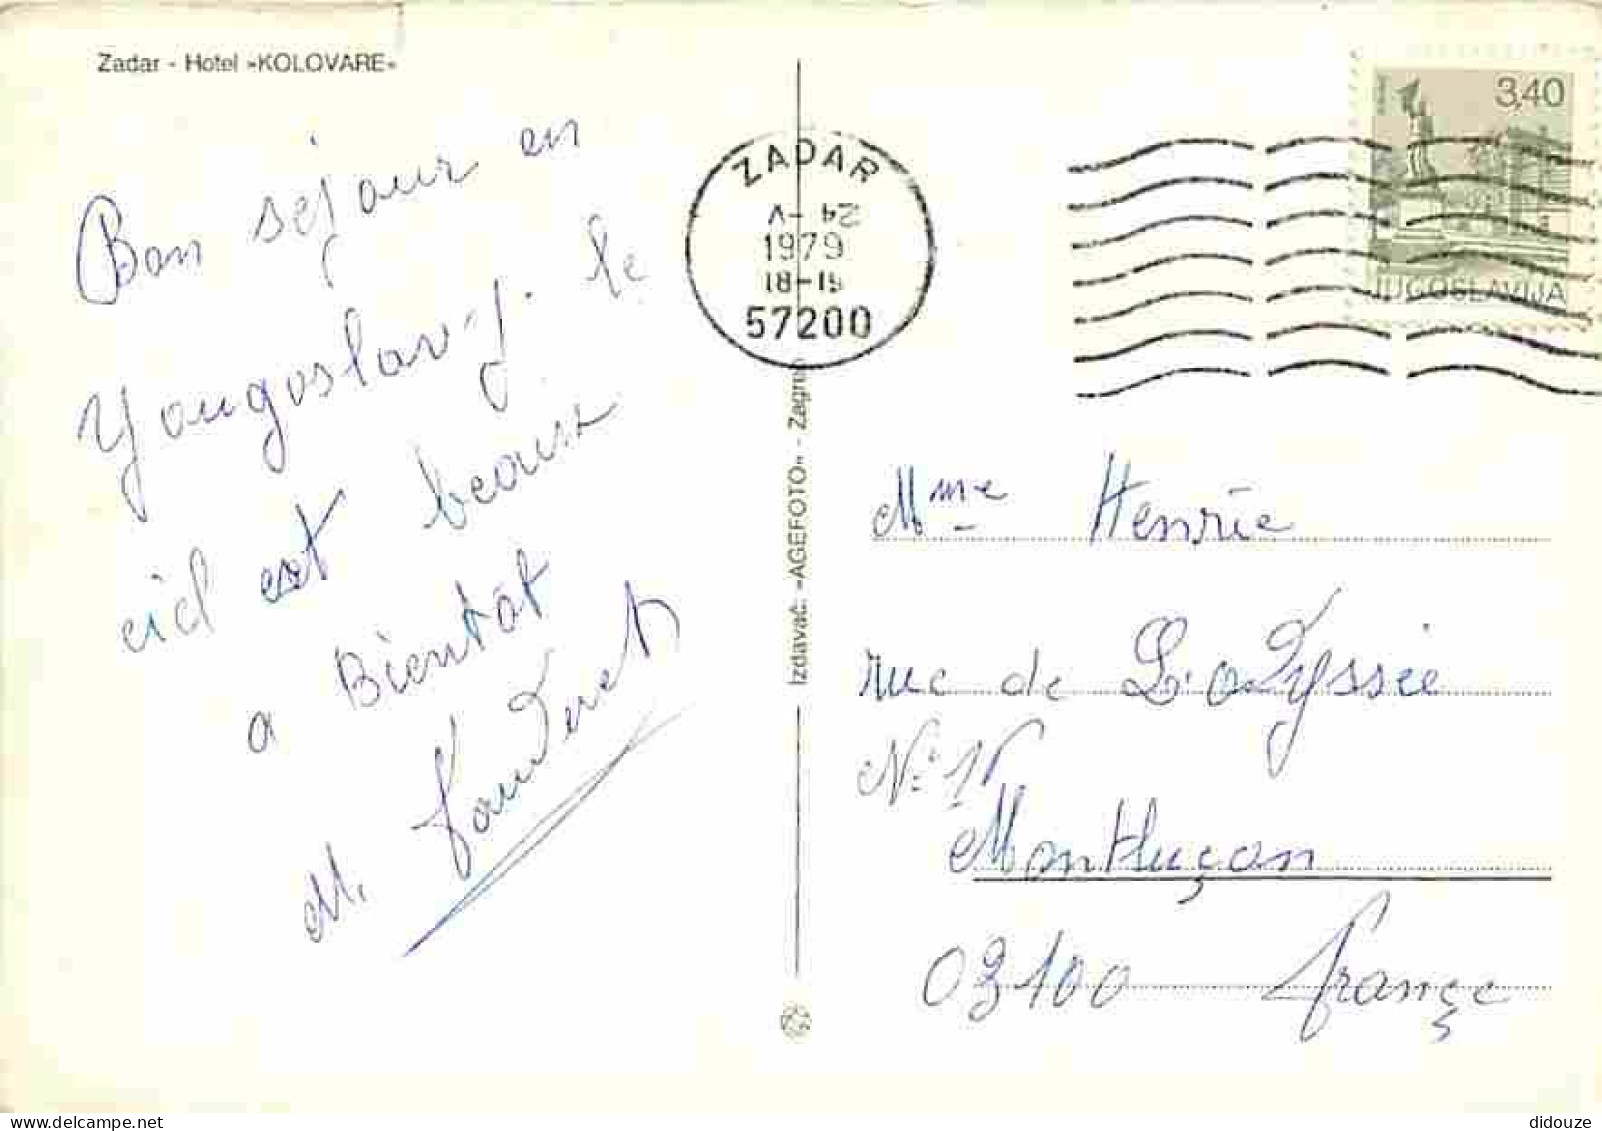 Zadar - Hotel »KOLOVARE«
Bon séjour en
Yougoslavij. le
ciel est beaux
a Bientôt
M.
Izdavač: »AGEFOTO« - Zagreb
ZADAR
24 -V
1979
18-19
57200
3,40
JUGOSLAVIJA
Mme Henrie
rue de
N:
Montluçon
03100 françe
didouze